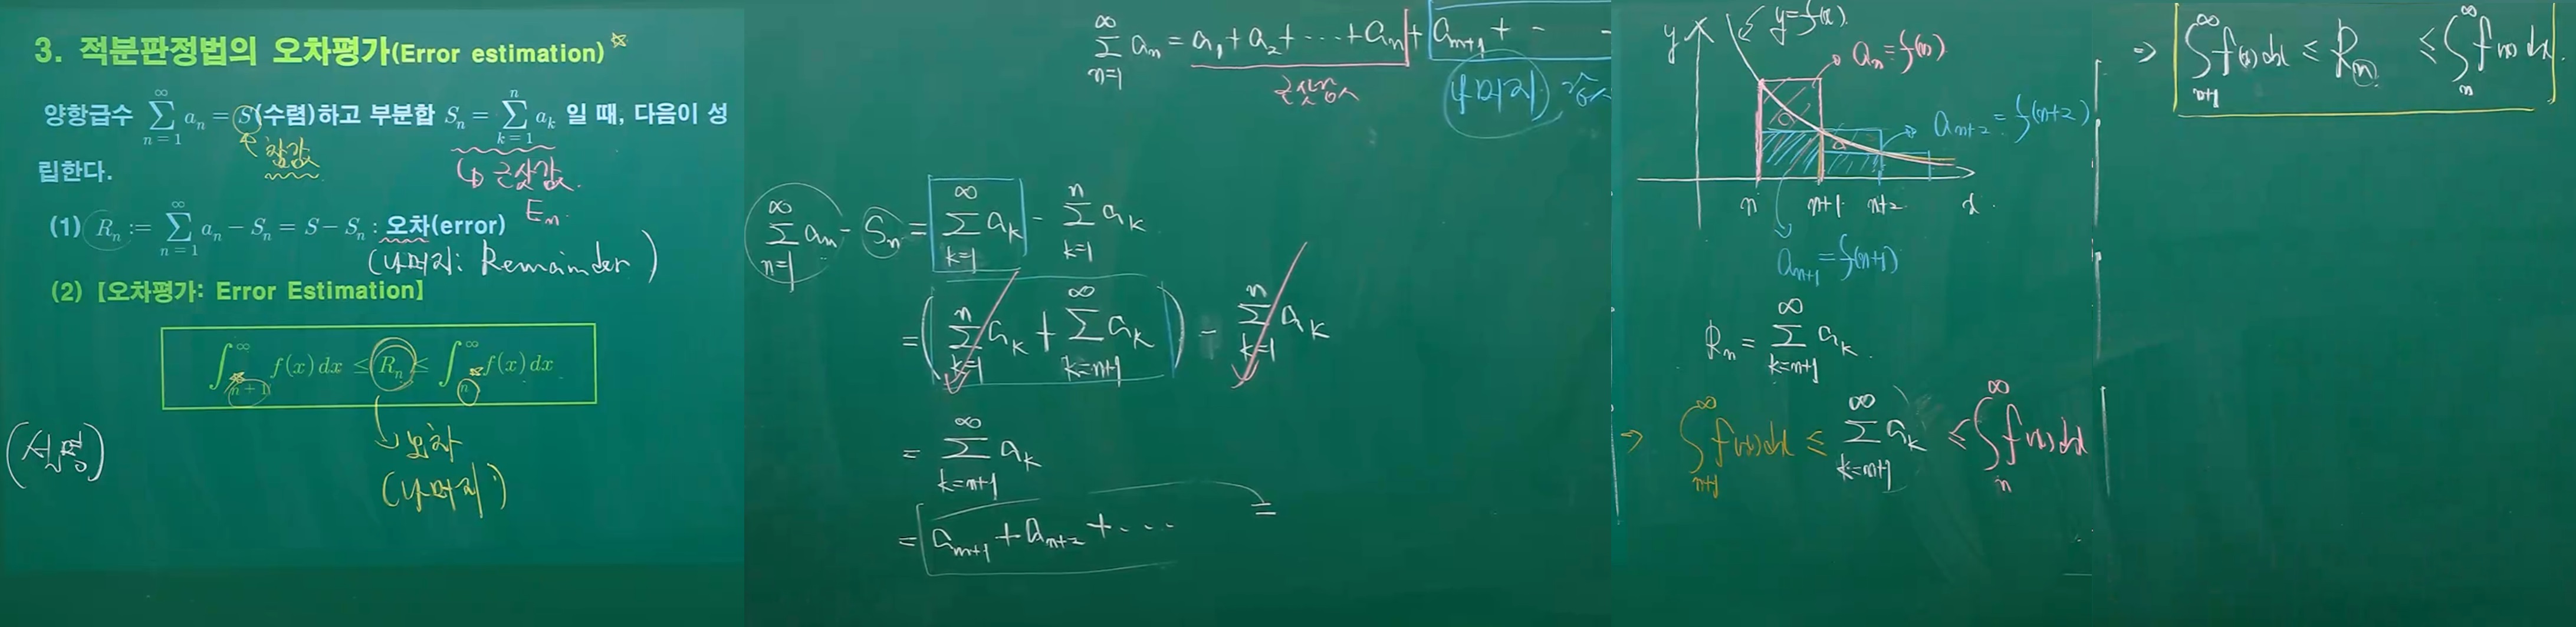 3. 적분판정법의 오차평가(Error estimation)☆
양항급수 ∑_{n=1}^{∞} a_n = S(수렴)하고 부분합 S_n = ∑_{k=1}^{n} a_k 일 때, 다음이 성
참값
립한다.
↳ 근삿값.
E_n.
(1) R_n := ∑_{n=1}^{∞} a_n - S_n = S - S_n : 오차(error)
(나머지: Remainder)
(2) [오차평가: Error Estimation]
∫_{n+1}^{∞} f(x) dx ≤ R_n ≤ ∫_{n}^{∞} f(x) dx
오차
(나머지)
(설명)
∑_{n=1}^{∞} a_n = a_1 + a_2 + ⋯ + a_n + a_{n+1} + ⋯
나머지
∑_{n=1}^{∞} a_n - S_n = ∑_{k=1}^{∞} a_k - ∑_{k=1}^{n} a_k
= (∑_{k=1}^{n} a_k + ∑_{k=n+1}^{∞} a_k) - ∑_{k=1}^{n} a_k
= ∑_{k=n+1}^{∞} a_k
= a_{n+1} + a_{n+2} + ⋯
y
y=f(x).
a_n = f(n)
a_{n+2} = f(n+2)
n n+1 n+2 x
a_{n+1} = f(n+1)
R_n = ∑_{k=n+1}^{∞} a_k.
⇒ ∫_{n+1}^{∞} f(x)dx ≤ ∑_{k=n+1}^{∞} a_k ≤ ∫_{n}^{∞} f(x)dx
⇒ ∫_{n+1}^{∞} f(x)dx ≤ R_n ≤ ∫_{n}^{∞} f(x)dx.